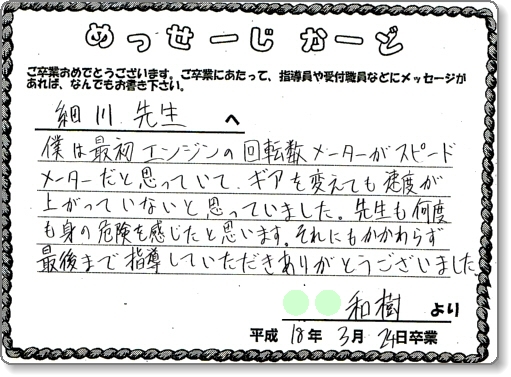 めっせーじ かーど
ご卒業おめでとうございます。ご卒業にあたって、指導員や受付職員などにメッセージが
あれば、なんでもお書き下さい。
細川 先生 へ
僕は最初エンジンの回転数メーターがスピード
メーターだと思っていて、ギアを変えても速度が
上がっていないと思っていました。先生も何度
も身の危険を感じたと思います。それにもかかわらず
最後まで指導していただきありがとうございました。
和樹 より
平成 18年 3月 24日卒業